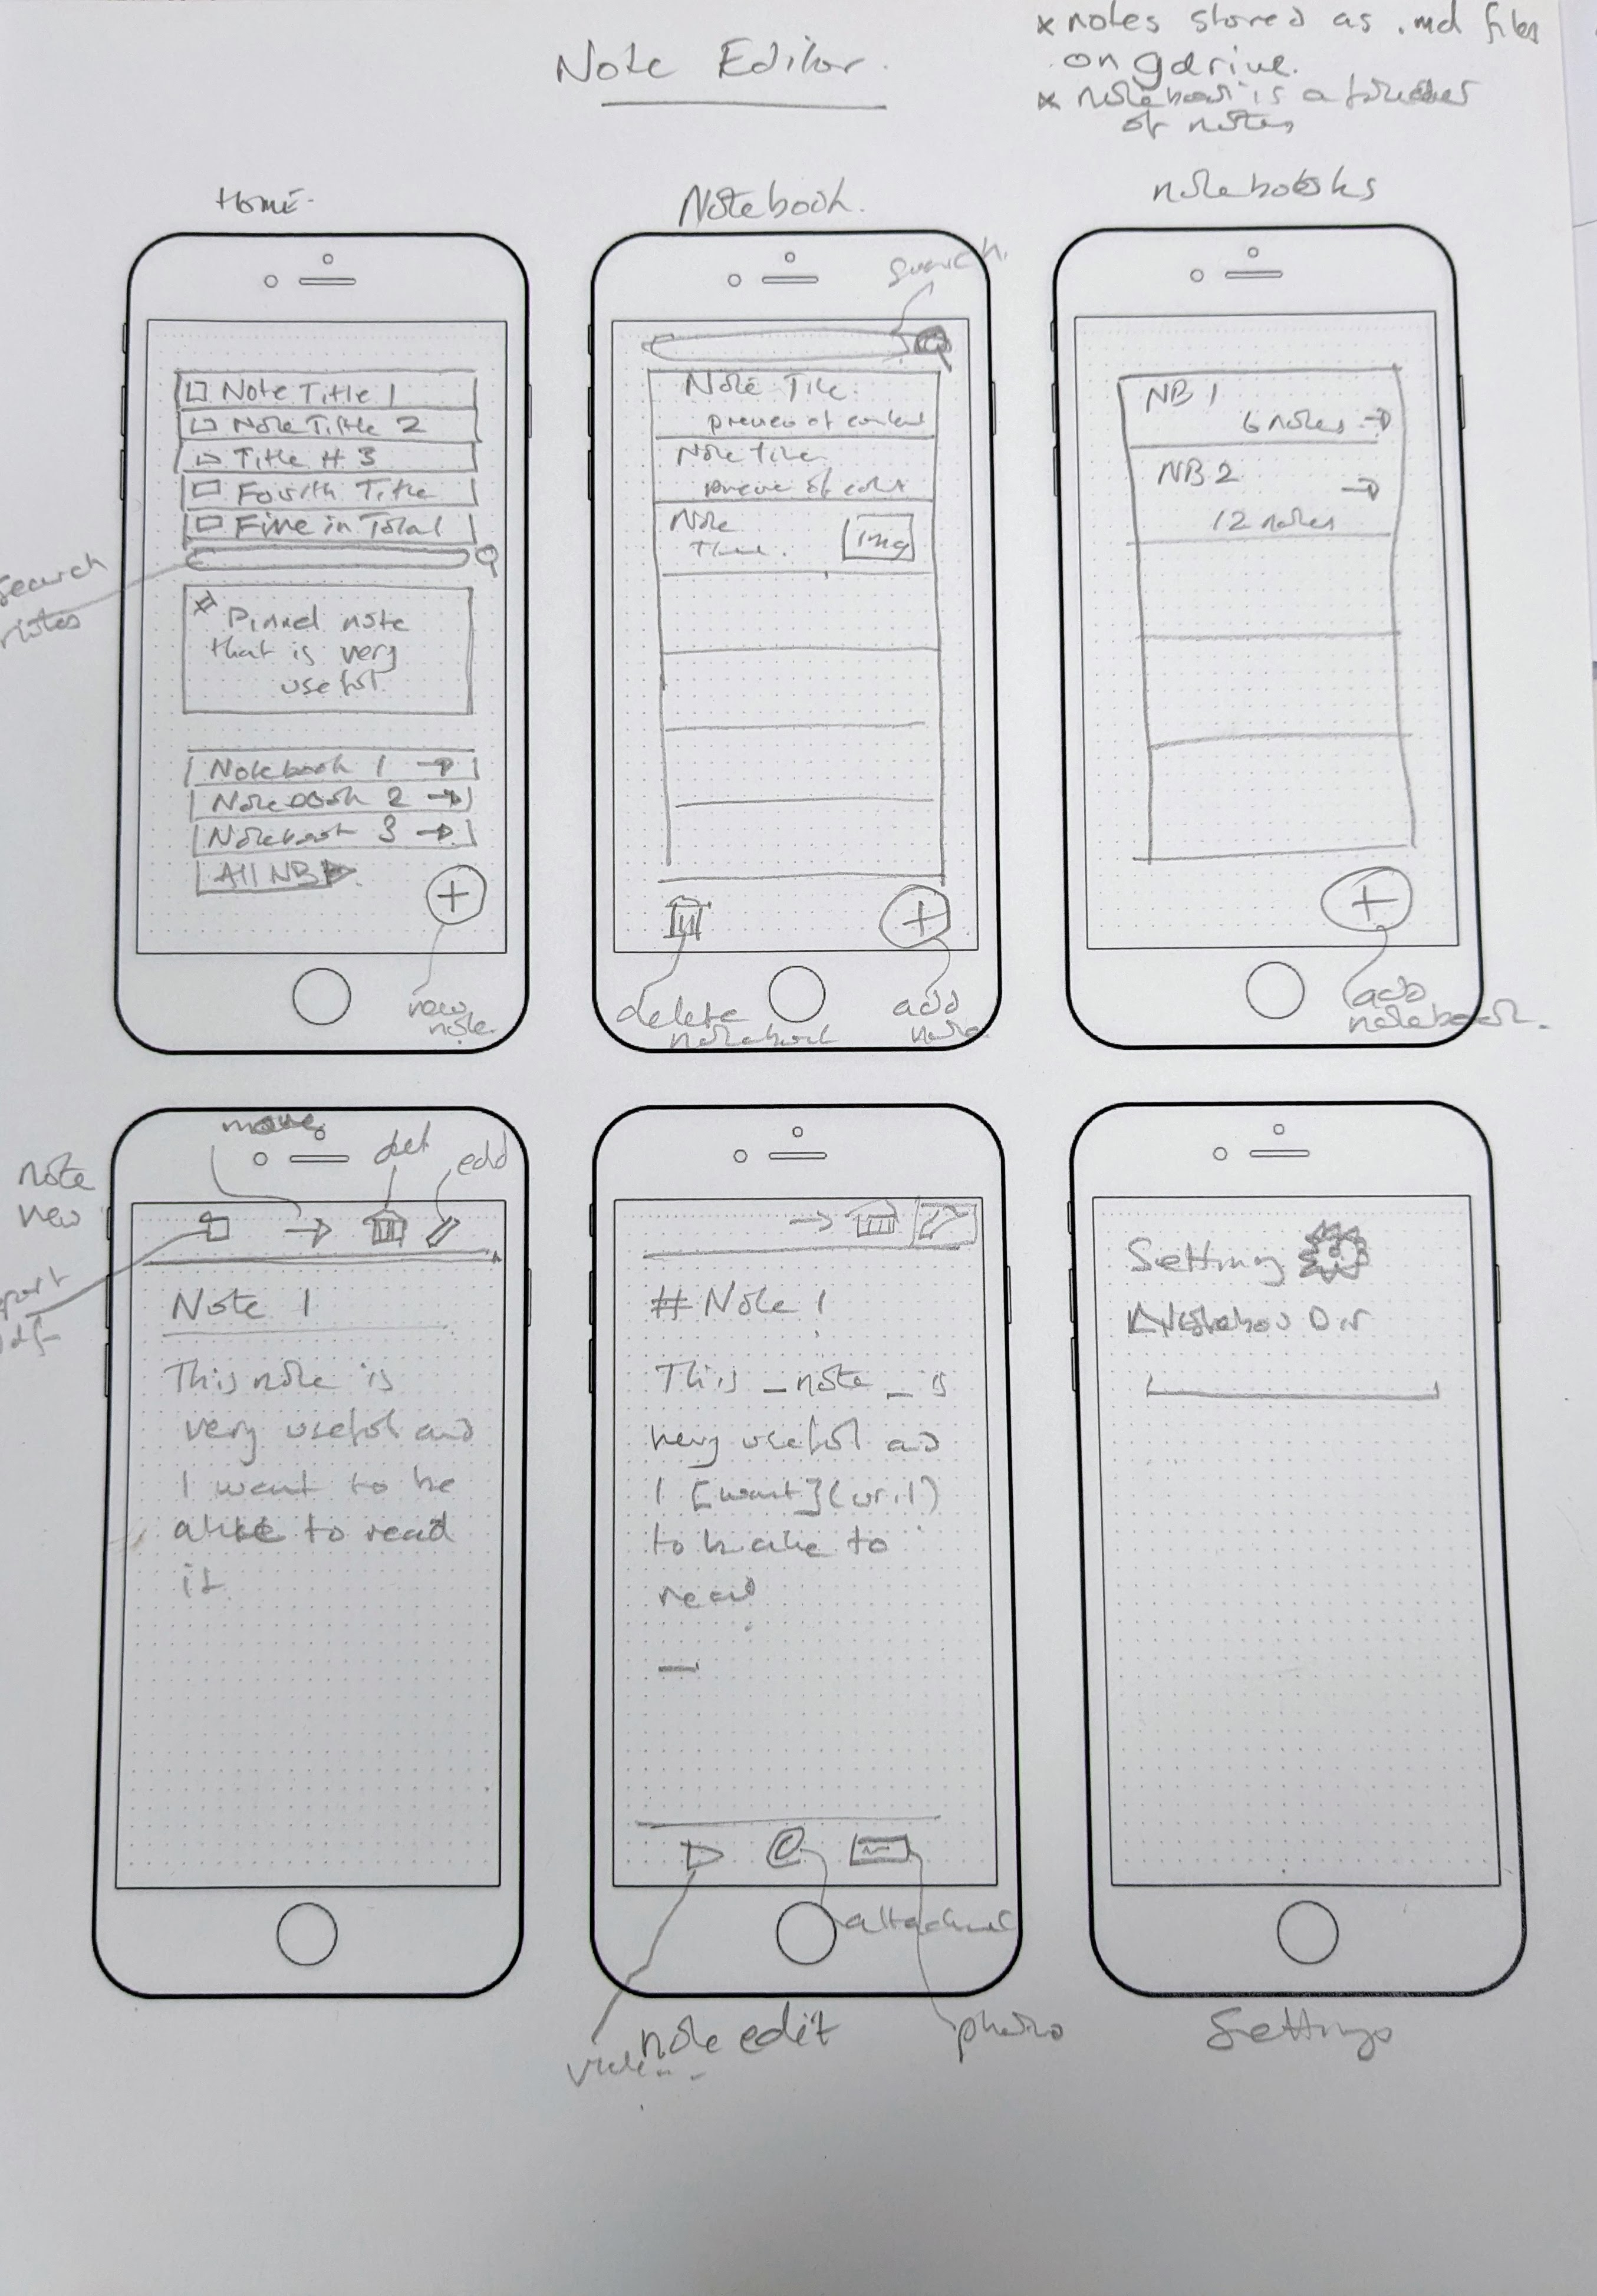 Note Editor.
* notes stored as .md files
on gdrive.
* notebook is a
of notes
HOME.
Note Title 1
Note Title 2
Title # 3
Fourth Title
Five in Total
Search
notes
Pinned note
that is very
useful
Notebook 1 →
Notebook 2 →
Notebook 3 →
All NB
+
new
note.
Notebook.
search.
Note Title
preview of content
Note Title
of
Note
img
+
delete
notebook
add
note
notebooks
NB 1
6 notes →
NB 2
→
12 notes
+
add
notebook.
note
move
del
→
Note 1
This note is
very useful and
I want to be
able to read
it.
→
# Note 1
This _note_ is
very useful and
I [want](url)
to be able to
read
attachment
note edit
photo
Setting
Dir
Settings